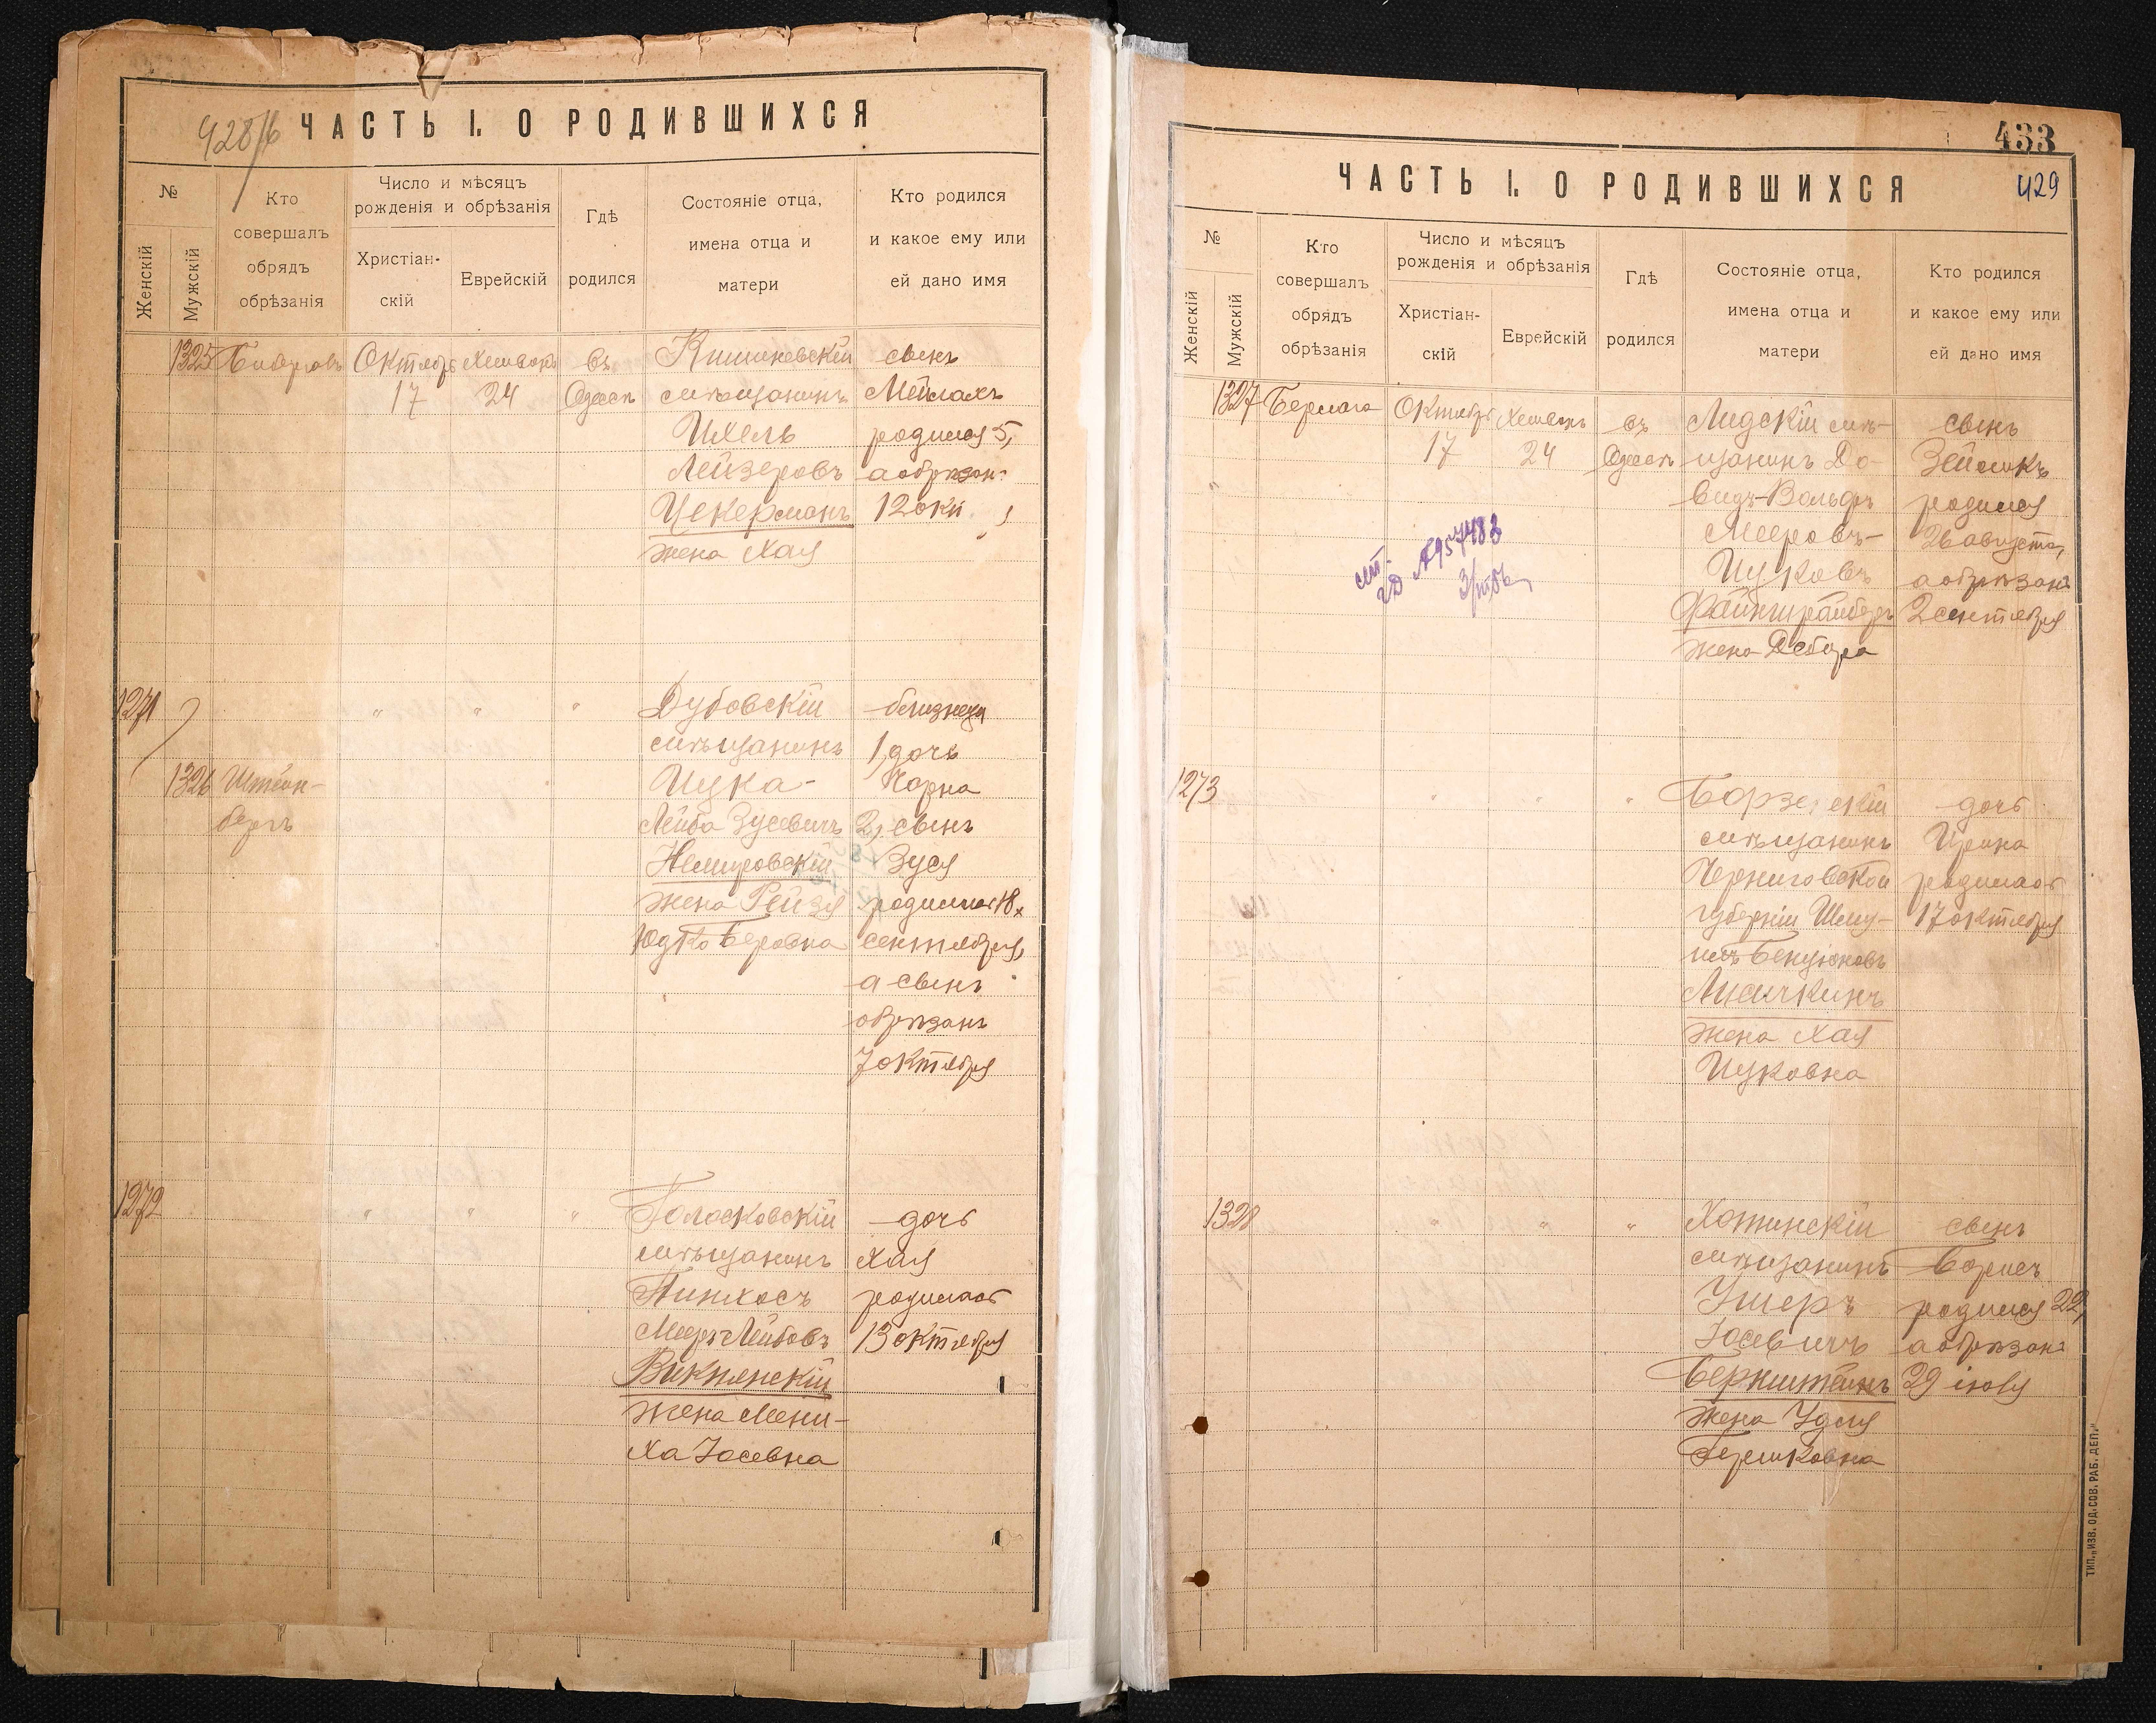 428/б
ЧАСТЬ I. О РОДИВШИХСЯ
№
Женскій
Мужскій
Кто
совершалъ
обрядъ
обрѣзанія
Число и мѣсяцъ
рожденія и обрѣзанія
Христіан-
скій
Еврейскій
Гдѣ
родился
Состояніе отца,
имена отца и
матери
Кто родился
и какое ему или
ей дано имя
1325
Октябрь
17
Хешванъ
24
въ
Одессѣ
Кишиневскій
мѣщанинъ
Ихель
Лейзеровъ
Цекерманъ
жена Хая
сынъ
Мейлахъ
родился 5,
а обрѣзанъ
12 окт.
1271
1326
Штейн-
бергъ
"
"
"
Дубовскій
мѣщанинъ
Ицка-
Лейба Зусевичъ
Немировскій
жена Рейзя
Юдко Беровна
близнецы
1, дочь
Чарна
2, сынъ
Зуся
родились 18
сентября,
а сынъ
обрѣзанъ
7 октября
1272
"
"
"
Голосковскій
мѣщанинъ
Пинхосъ
Мееръ Лейбовъ
Викнянскій
жена Мени-
ха Іосевна
дочь
Хая
родилась
13 октября
433
429
ЧАСТЬ I. О РОДИВШИХСЯ
№
Женскій
Мужскій
Кто
совершалъ
обрядъ
обрѣзанія
Число и мѣсяцъ
рожденія и обрѣзанія
Христіан-
скій
Еврейскій
Гдѣ
родился
Состояніе отца,
имена отца и
матери
Кто родился
и какое ему или
ей дано имя
1327
Октябрь
17
Хешванъ
24
въ
Одессѣ
Лидскій мѣ-
щанинъ До-
видъ-Вольфъ
Мееровъ-
Ицковъ
Файнштрайберъ
жена Дебора
сынъ
Зейликъ
родился
26 августа,
а обрѣзанъ
2 сентября
1273
"
"
"
мѣщанинъ
Черниговской
губерніи Шму-
илъ Бенціоновъ
Лисичкинъ
жена Хая
Ицковна
дочь
Ирина
родилась
17 октября
1328
"
"
"
Хотинскій
мѣщанинъ
Ушеръ
Іосевичъ
Бернштейнъ
жена Удля
Гершковна
сынъ
Борисъ
родился 22,
а обрѣзанъ
29 іюля
ТИП. „ИЗВ. ОД. СОВ. РАБ. ДЕП."